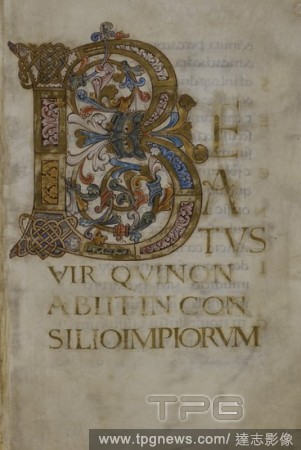 BE
A
TVS
VIR QVI NON
ABIIT IN CON
SILIO IMPIORVM
TPG
www.tpgnews.com/ 達志影像